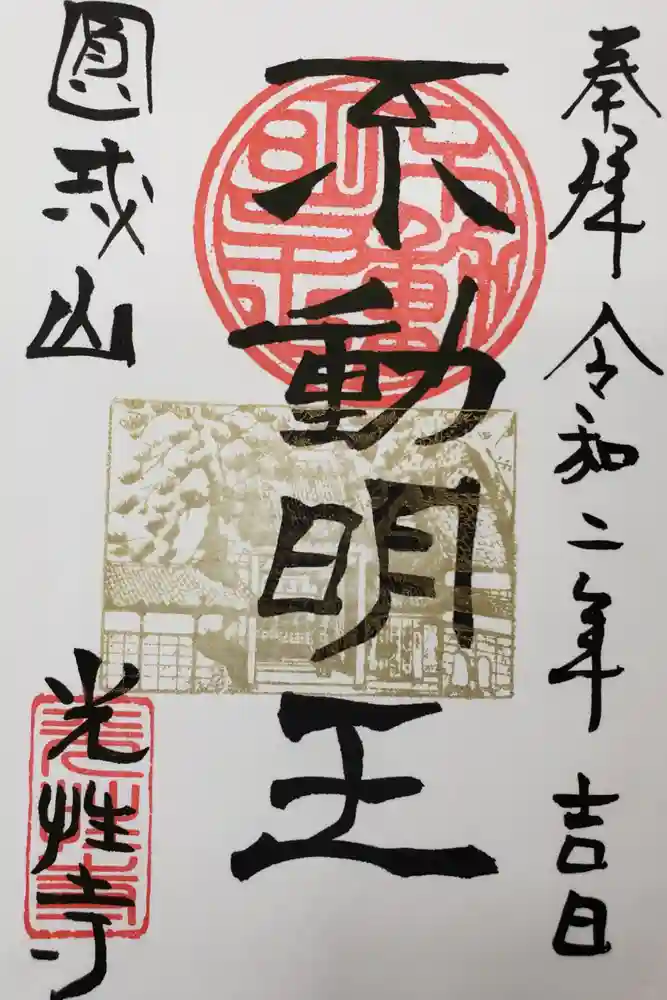 奉拝 令和二年 吉日
不動明王
圓戒山
光性寺